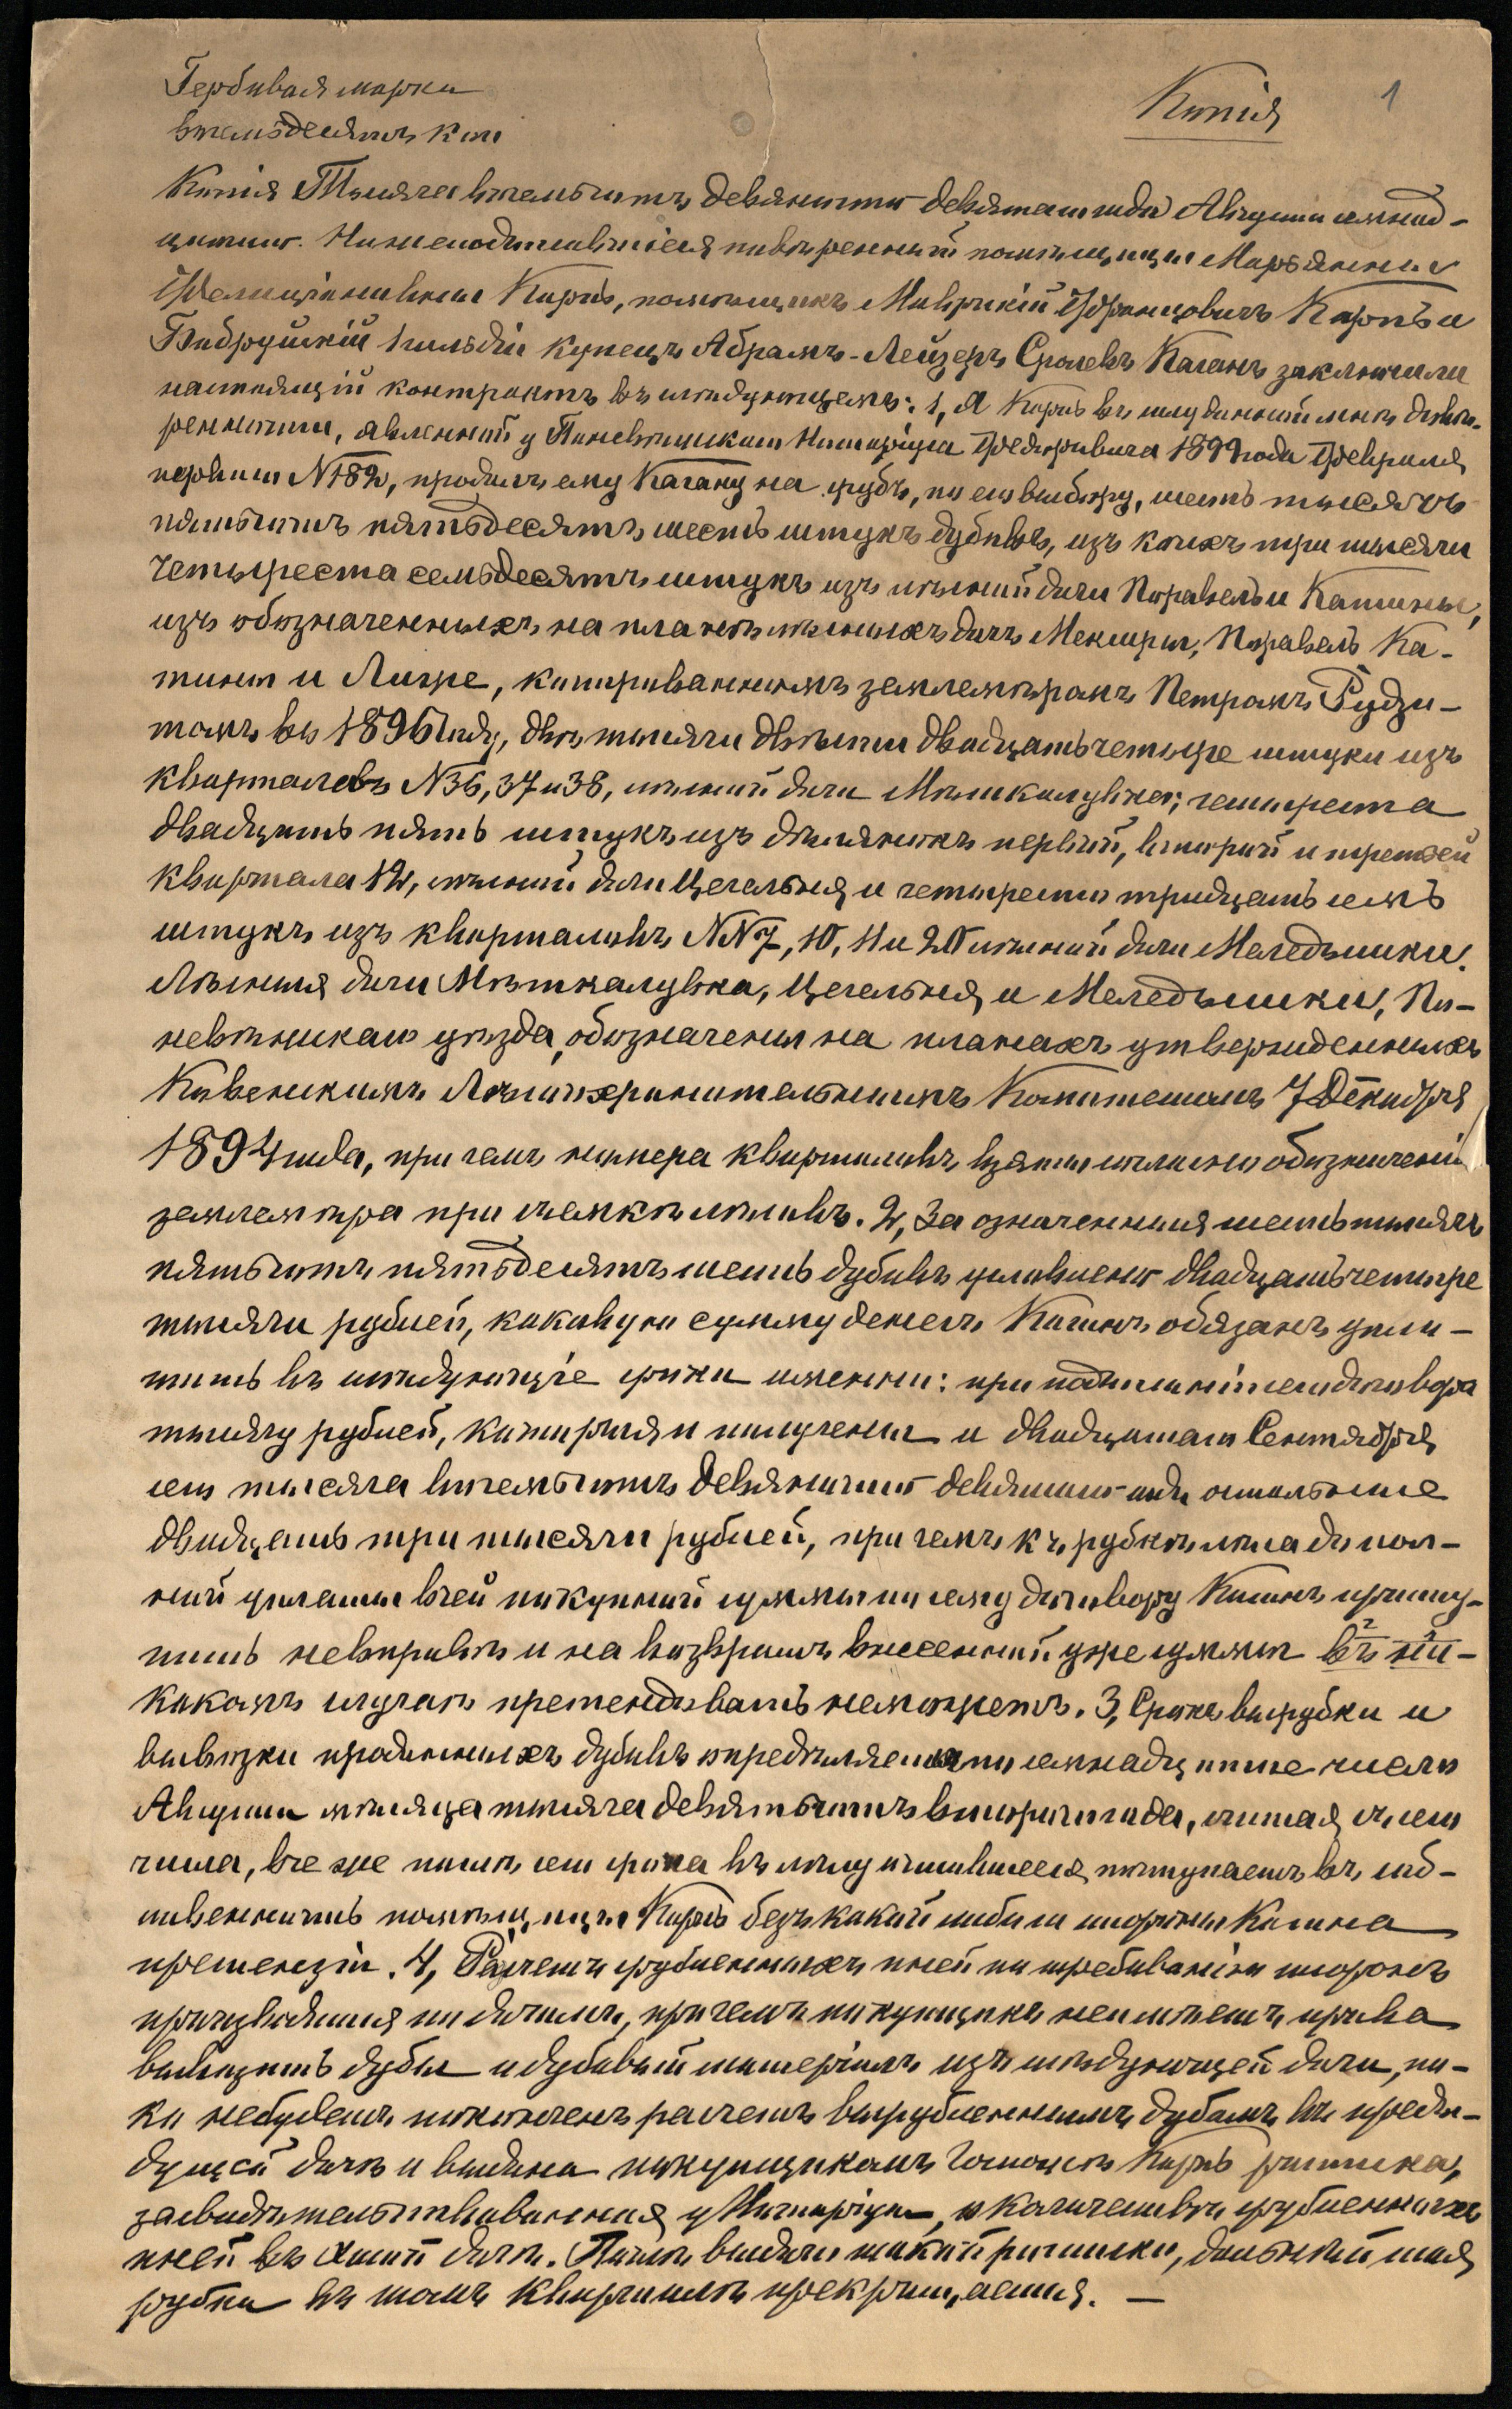 Гербовая марка
восемьдесятъ коп
Копія
1
Копія Тысяча восемьсотъ девяносто девятаго года Августа семнад-
цатаго. Нижеподписавшіеся повѣренный помѣщицы Марьянны
Фелиціановны Карпь, помѣщикъ Маврикій Францовичъ Карпь и
Бобруйскій 1 гильдіи купецъ Абрамъ-Лейзеръ Сролевъ Каганъ заключили
настоящій контрактъ въ слѣдующемъ: 1, Я Карпь въ силу данной мнѣ довѣ-
ренности, явленной у Поневѣжскаго Нотаріуса Федоровича 1899 года Февраля
перваго N 182, продалъ ему Кагану на срубъ, по его выбору, шесть тысячъ
пятьсотъ пятьдесятъ шесть штукъ дубовъ, изъ коихъ три тысячи
четыреста семьдесятъ штукъ изъ лѣсной дачи Поравель и Катины,
изъ обозначенныхъ на планѣ лѣсныхъ дачъ Мекшры, Поравель Ка-
тины и Лигре, копированнымъ землемѣромъ Петромъ Рудзи-
томъ въ 1896 году, двѣ тысячи двѣсти двадцать четыре штуки изъ
кварталовъ N 36, 37 и 38, лѣсной дачи Мѣшкалувка; четыреста
двадцать пять штукъ изъ дѣлянокъ первой, второй и третьей
квартала 12, лѣсной дачи Цегельня и четыреста тридцать семь
штукъ изъ кварталовъ NN 7, 10, 11 и 20 лѣсной дачи Меледышки.
Лѣсныя дачи Мѣшкалувка, Цегельня, и Меледышки, По-
невѣжскаго уѣзда, обозначены на планахъ утвержденныхъ
Ковенскимъ Лѣсоохранительнымъ Комитетомъ 7 Декабря
1894 года, при чемъ номера кварталовъ взяты согласно обозначенію
землемѣра при съемкѣ лѣсовъ. 2, За означенныя шесть тысячъ
пятьсотъ пятьдесятъ шесть дубовъ условлено двадцать четыре
тысячи рублей, каковую сумму денегъ Каганъ обязанъ упла-
тить въ слѣдующіе сроки именно: при подписаніи сего договора
тысячу рублей, которыя и получены и двадцатаго Сентября
сего тысяча восемьсотъ девяносто девятаго года остальные
двадцать три тысячи рублей, при чемъ къ рубкѣ лѣса до пол-
ной уплаты всей покупной суммы по сему договору Каганъ присту-
пить не вправѣ и на возвратъ внесенной уже суммы въ ни-
какомъ случаѣ претендовать не можетъ. 3, Срокъ вырубки и
вывозки проданныхъ дубовъ опредѣляется по семнадцатое число
Августа мѣсяца тысяча девятьсотъ второго года, считая съ сего
числа, все же послѣ сего срока въ лѣсу оставшееся поступаетъ въ соб-
ственность помѣщицы Карпь безъ какой либо со стороны Кагана
претензіи. 4, Расчетъ срубленныхъ пней по требованію сторонъ
производится по дачамъ, при чемъ покупщикъ не имѣетъ права
вывозить дубы и дубовый матеріалъ изъ слѣдующей дачи, по-
ка не будетъ поконченъ расчетъ вырубленнымъ дубамъ въ преды-
дущей дачѣ и выдана покупщикомъ Госпожѣ Карпь росписка,
засвидѣтельствованная у Нотаріуса, о количествѣ срубленныхъ
пней въ данной дачѣ. Послѣ выдачи такой росписки, дальнѣйшая
рубка въ томъ кварталѣ прекращается. —